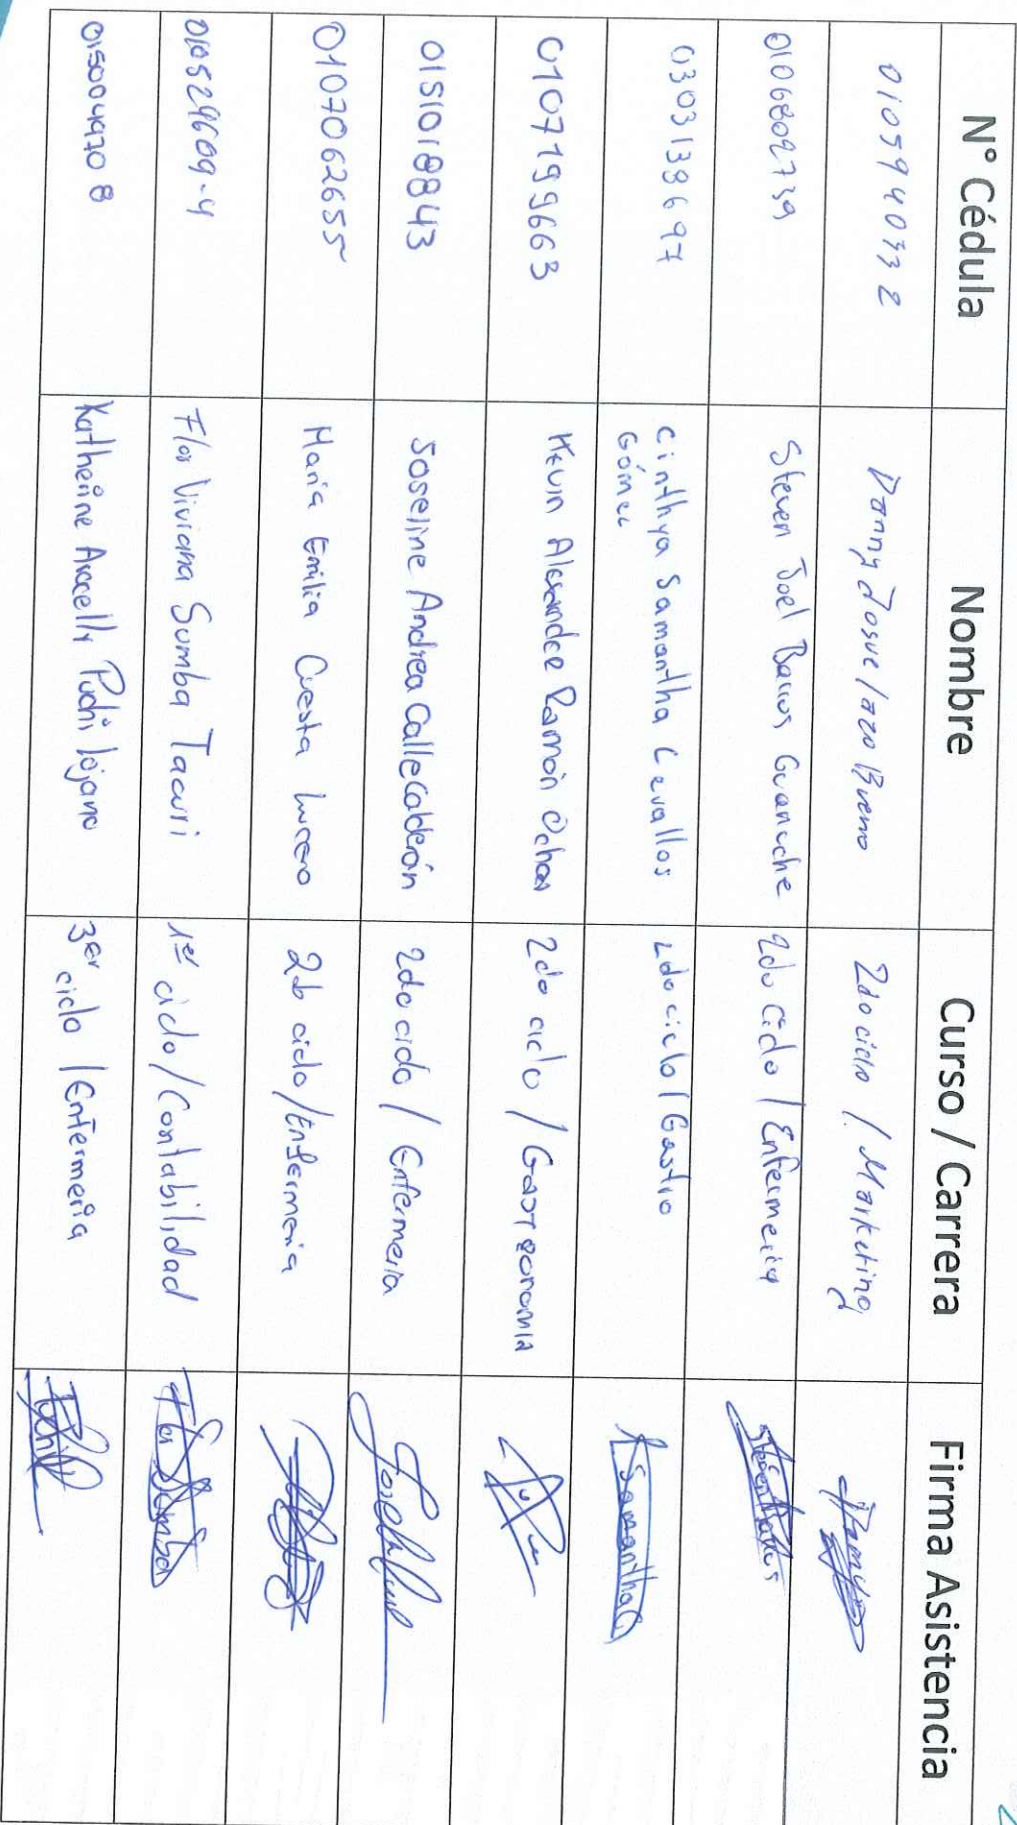 N° Cédula Nombre Curso / Carrera Firma Asistencia
0105940332 Danny Josue lazo Bueno 2do ciclo / Marketing
0106809739 Steven Joel Barros Guanuche 2do Ciclo / Enfermeria Steven Barros
0303138697 Cinthya Samantha Cevallos 2do ciclo / Gastro Samantha C
Gómez
0107199663 Kevin Alexander Ramón Ochoa 2do ciclo / Gastronomia
0151018843 Joseline Andrea Calle Calderón 2do ciclo / Enfermeria
0107062655 Maria Emilia Cuesta Lucero 2do ciclo / Enfermeria
010529609-4 Flor Viviana Sumba Tacuri 1er ciclo / Contabilidad Flor Sumba
0150049708 Katherine Aracelly Puchi Lojano 3er ciclo / Enfermeria